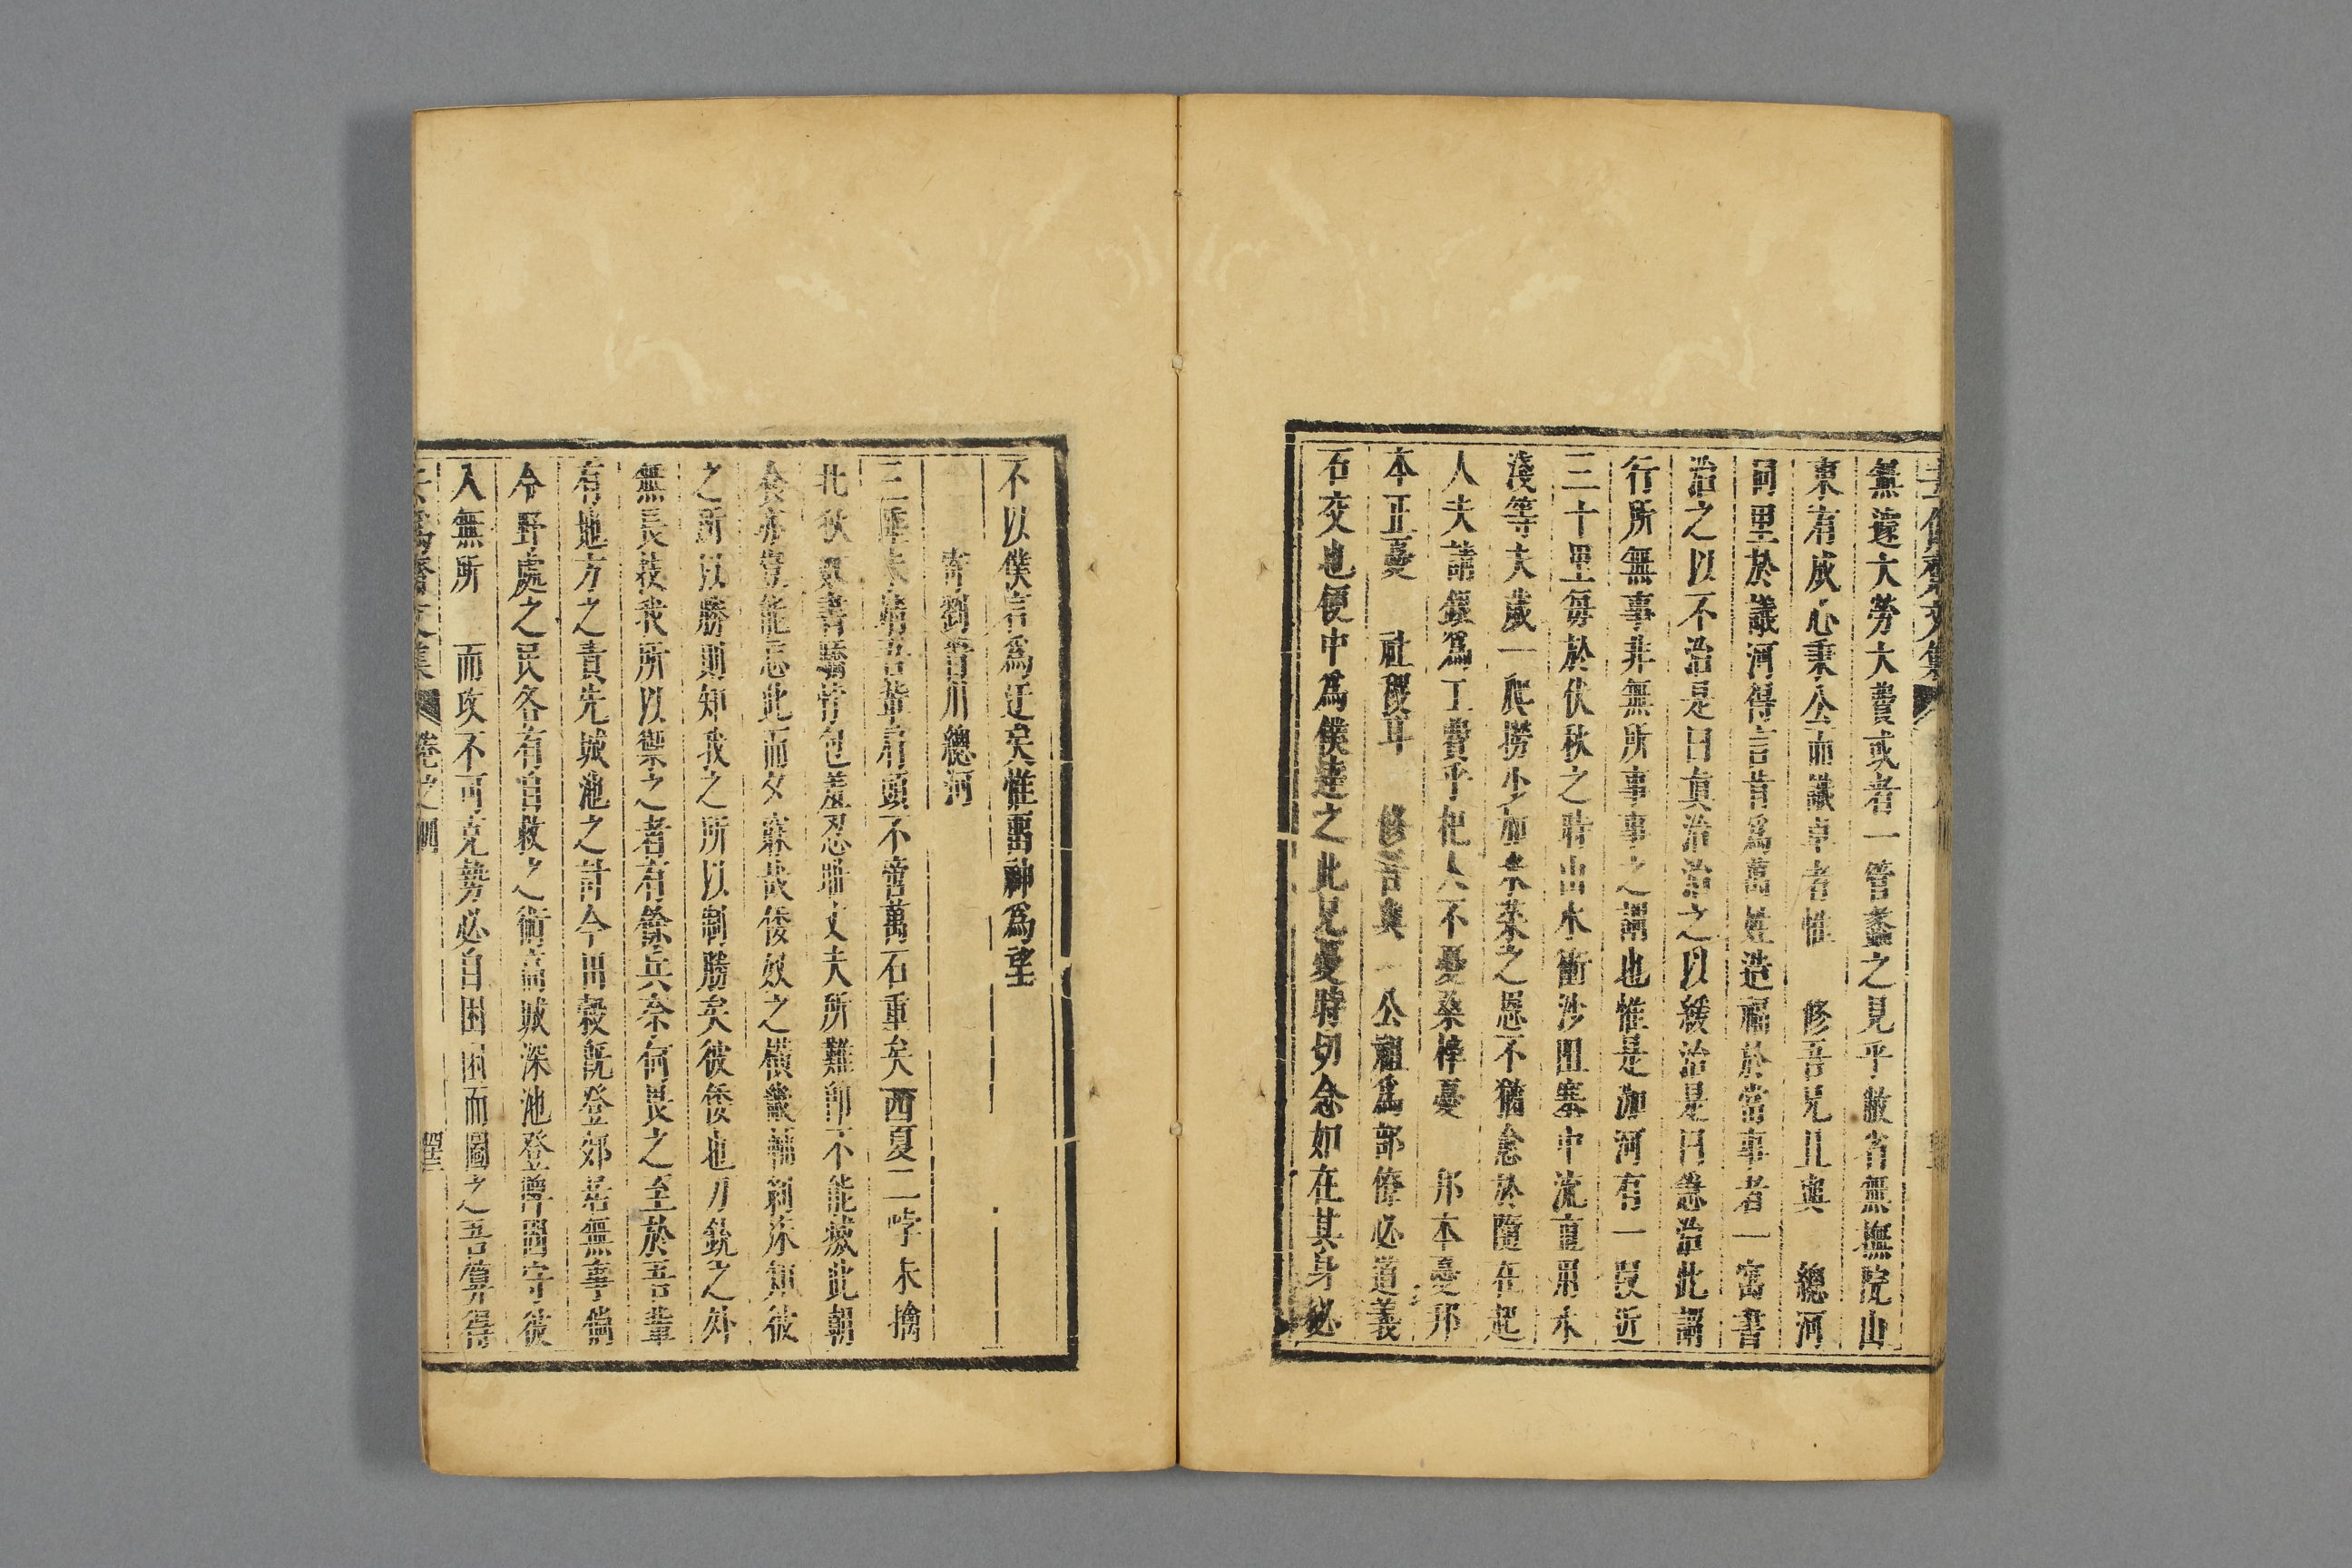 無遠大勞大費或者一管蠡之見乎敝省無撫院山
東有成心秉公而議卓者惟　修吾兄且與　總河
同里於議河得言肯爲萬姓造福於當事者一寓書
治之以不治是曰真治治之以緩治是曰急治此謂
行所無事非無所事事之謂也惟是泇河有一段近
三十里每於伏秋之時山水衝沙阻塞中流亶用水
淺等夫歲一爬撈少加采茶之恩不猶愈於隨在起
人夫請鏹爲工費乎杞人不憂桑梓憂　邦本憂邦
本正憂　社稷耳　修吾與　公祖爲部僚必道義
石交也便中爲僕達之此兄憂時切念如在其身必
不以僕言爲迂矣惟畱神爲望
寄劉晉川總河
三陲未靖吾輩肩頭不啻萬石重矣西夏二哱未擒
北狄嫚書驕悖包羞忍恥丈夫所難卽不能滅此朝
食亦豈能忘此而夕寐哉倭奴之橫幾輔剥床知彼
之所以勝則知我之所以制勝矣彼倭也刀銃之外
無長技我所以禦之者有餘兵奈何畏之至於吾輩
有地方之責先城池之計今田穀旣登郊若無事倘
令野處之民各有自救之術高城深池登埤固守彼
入無所　而攻不可克勢必自困困而圖之吾算得
去僞齋文集　卷之四